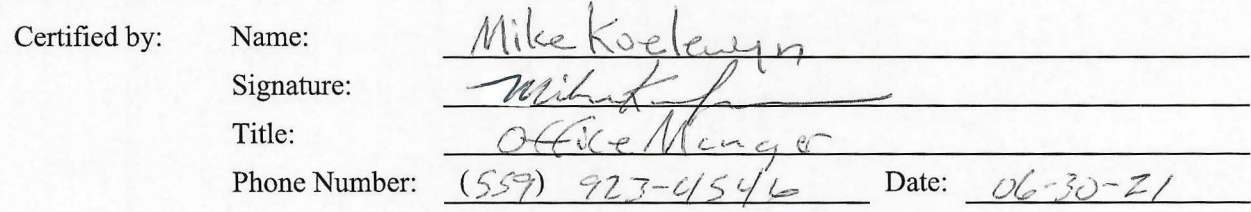 Certified by: Name: Mike Koelewyn
Signature: Mike K
Title: Office Manger
Phone Number: (559) 923-4546 Date: 06-30-21